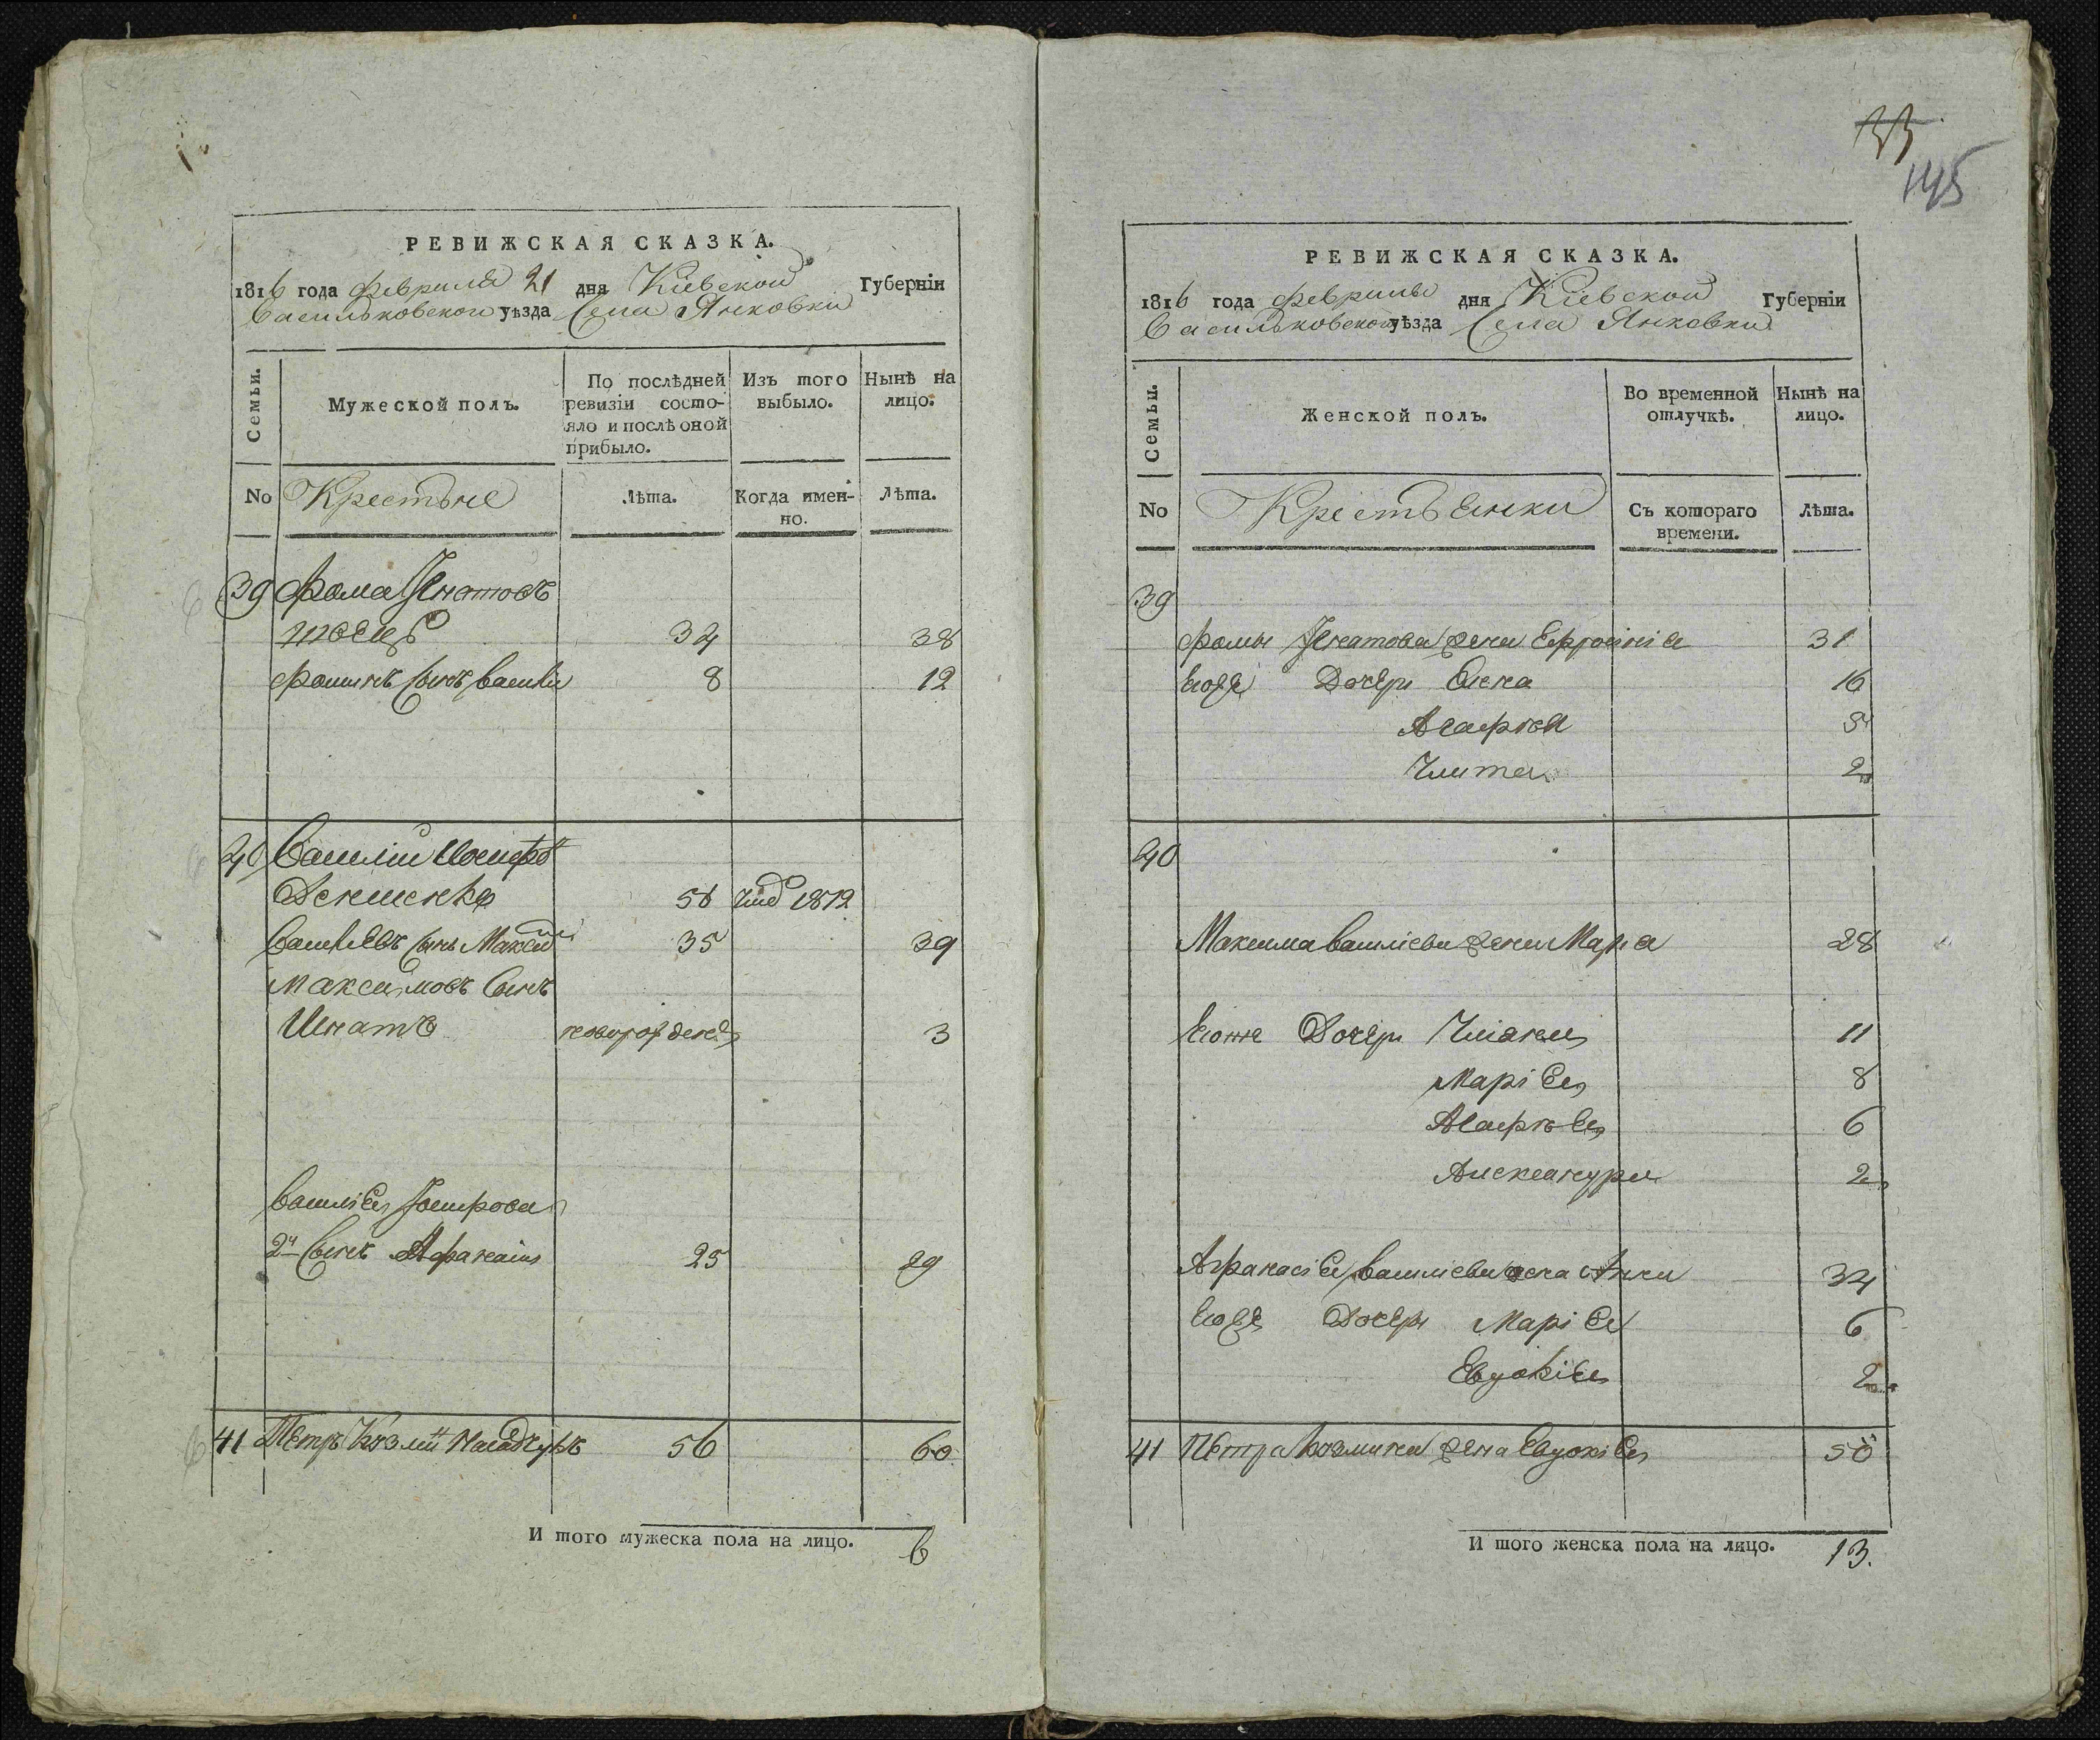 РЕВИЖСКАЯ СКАЗКА.
1816 года февраля 21 дня Кіевской Губерніи
Васильковской уѣзда Села Янковки
Семьи.
Мужеской полъ.
По послѣдней ревизіи состо-
яло и послѣ оной
прибыло.
Изъ того выбыло.
Нынѣ на лицо.
No
Крестьяне
Лѣта.
Когда имен-
но.
Лѣта.
39 Фома Игнатовъ
Швецъ 34 38
Фоминъ сынъ Василій 8 12
40 Василій Іосифов
56 1812
Васильевъ сынъ Максим 35 39
Максимовъ сынъ
Игнатъ новорожденъ 3
Василія Іосифова
2й сынъ Афанасій 25 29
41 Петръ 56 60
И того мужеска пола на лицо. 6
33
145
РЕВИЖСКАЯ СКАЗКА.
1816 года февраля дня Кіевской Губерніи
Васильковской уѣзда Села Янковки
Семьи.
Женской полъ.
Во временной
отлучкѣ.
Нынѣ на
лицо.
No
Крестьянки
Съ котораго
времени.
Лѣта.
39
Фомы Игнатова жена Ефросинія 31
Егоже дочери Анна 16
Агафія
2
40
Максима Василіева жена Марія 28
Егоже дочери 11
Марія 8
Агафія 6
Александра 2
Афанасія Василіева жена Анна 34
Егоже дочери Марія 6
Евдокія 2
41 Петра Козмина жена Евдокія 50
И того женска пола на лицо. 13.